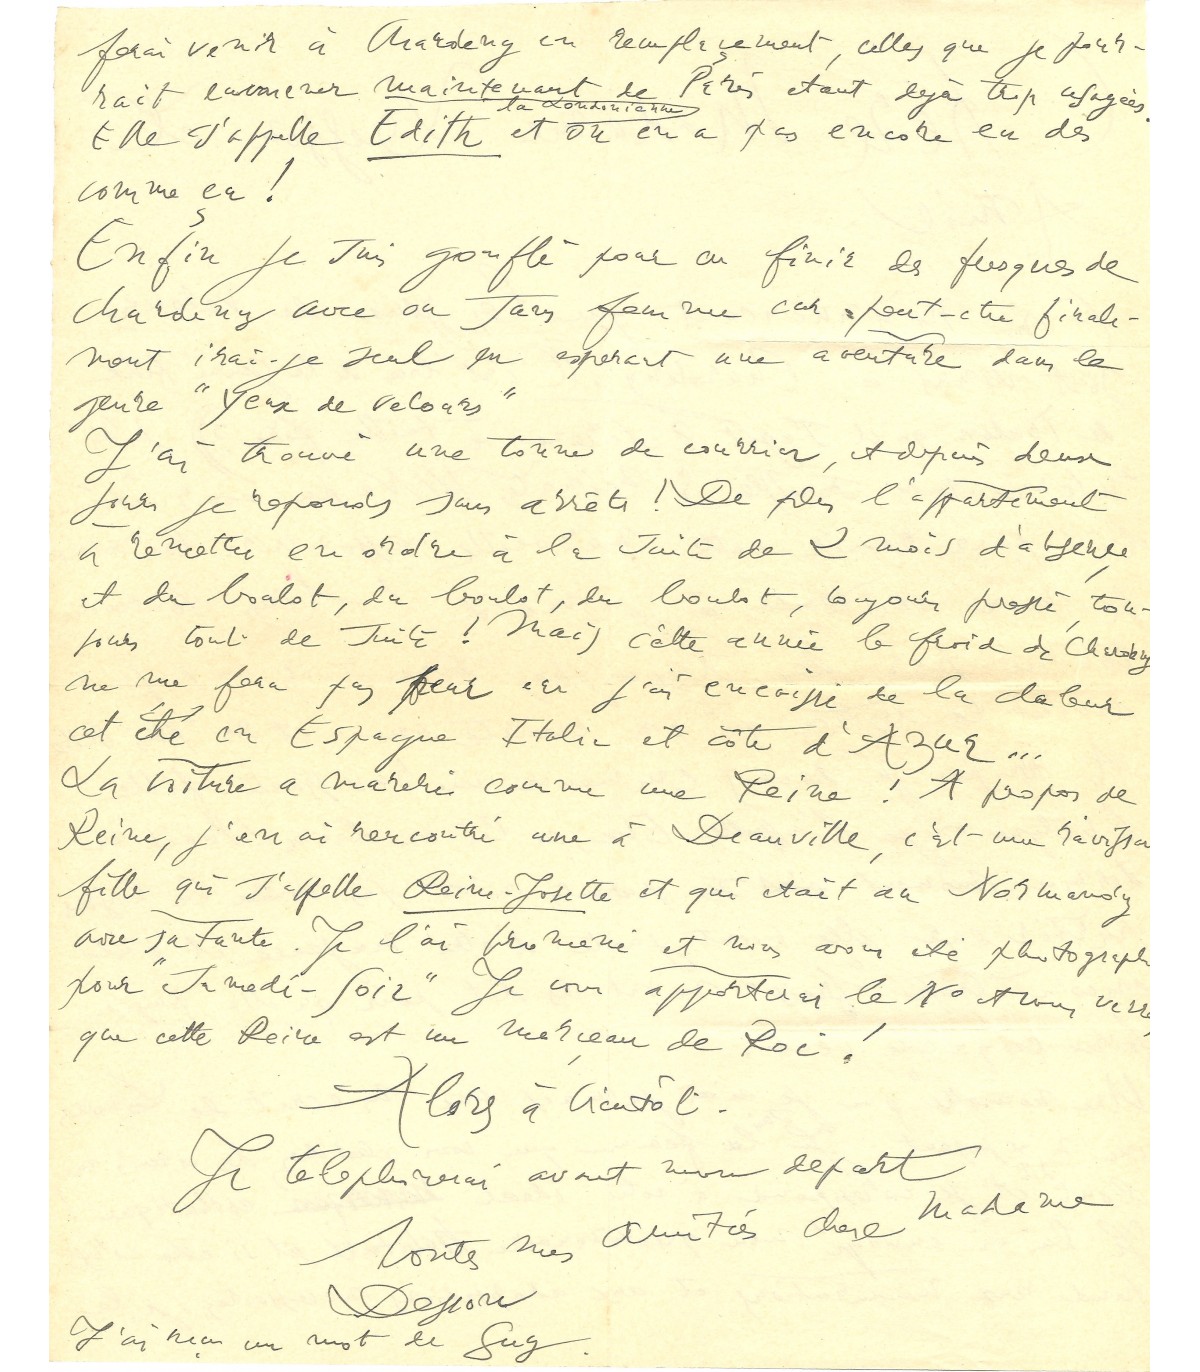 ferai venir à Chardeny en remplaçement, celles que je pour-
rait emmener maintenant de Paris etant dejà trop usagées.
Elle s'appelle Edith la Londonienne et on en a pas encore eu des
comme ça !
Enfin je suis gonflé pour en finir des fresques de
Chardeny avec ou sans femme car peut-etre finale-
ment irai-je seul en esperant une aventure dans le
genre "Yeux de velours"
J'ai trouvé une tonne de courrier, et depuis deux
jours je reponds sans arrêts ! De plus l'appartement
à remettre en ordre à la suite de 2 mois d'absence,
et du boulot, du boulot, du boulot, toujours pressé, tou-
jours tout de suite ! Mais cette année le froid de Chardeny
ne me fera pas peur car j'ai encaissé de la chaleur
cet été en Espagne Italie et côte d'Azur...
La voiture a marché comme une Reine ! A propos de
Reine, j'en ai rencontré une à Deauville, c'est une ravissa
fille qui s'appelle Reine-Josette et qui etait au Normandy
avec sa Tante. Je l'ai promené et nous avons eté photograph
pour "Samedi-Soir" Je vous apporterai le N° et vous verre
que cette Reine est un morçeau de Roi !
Alors à bientôt.
Je telephonerai avant mon depart
Toutes mes Amitiés chere Madame
J'ai reçu un mot de Guy.